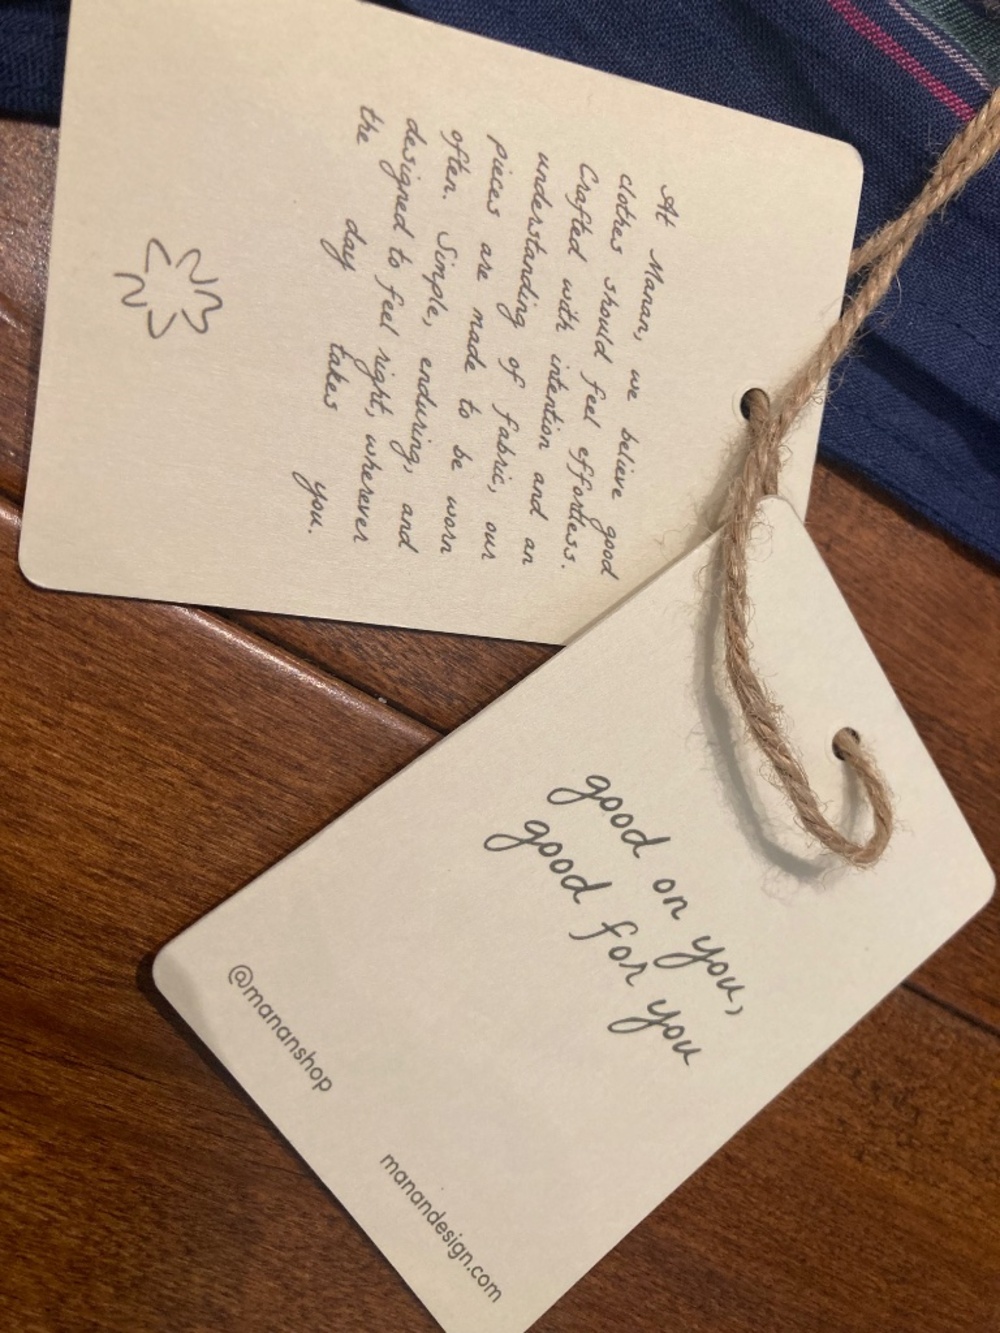 At Manan, we believe good
clothes should feel effortless.
Crafted with intention and an
understanding of fabric, our
pieces are made to be worn
often. Simple, enduring, and
designed to feel right, wherever
the day takes you.
good on you,
good for you
@mananshop
manandesign.com